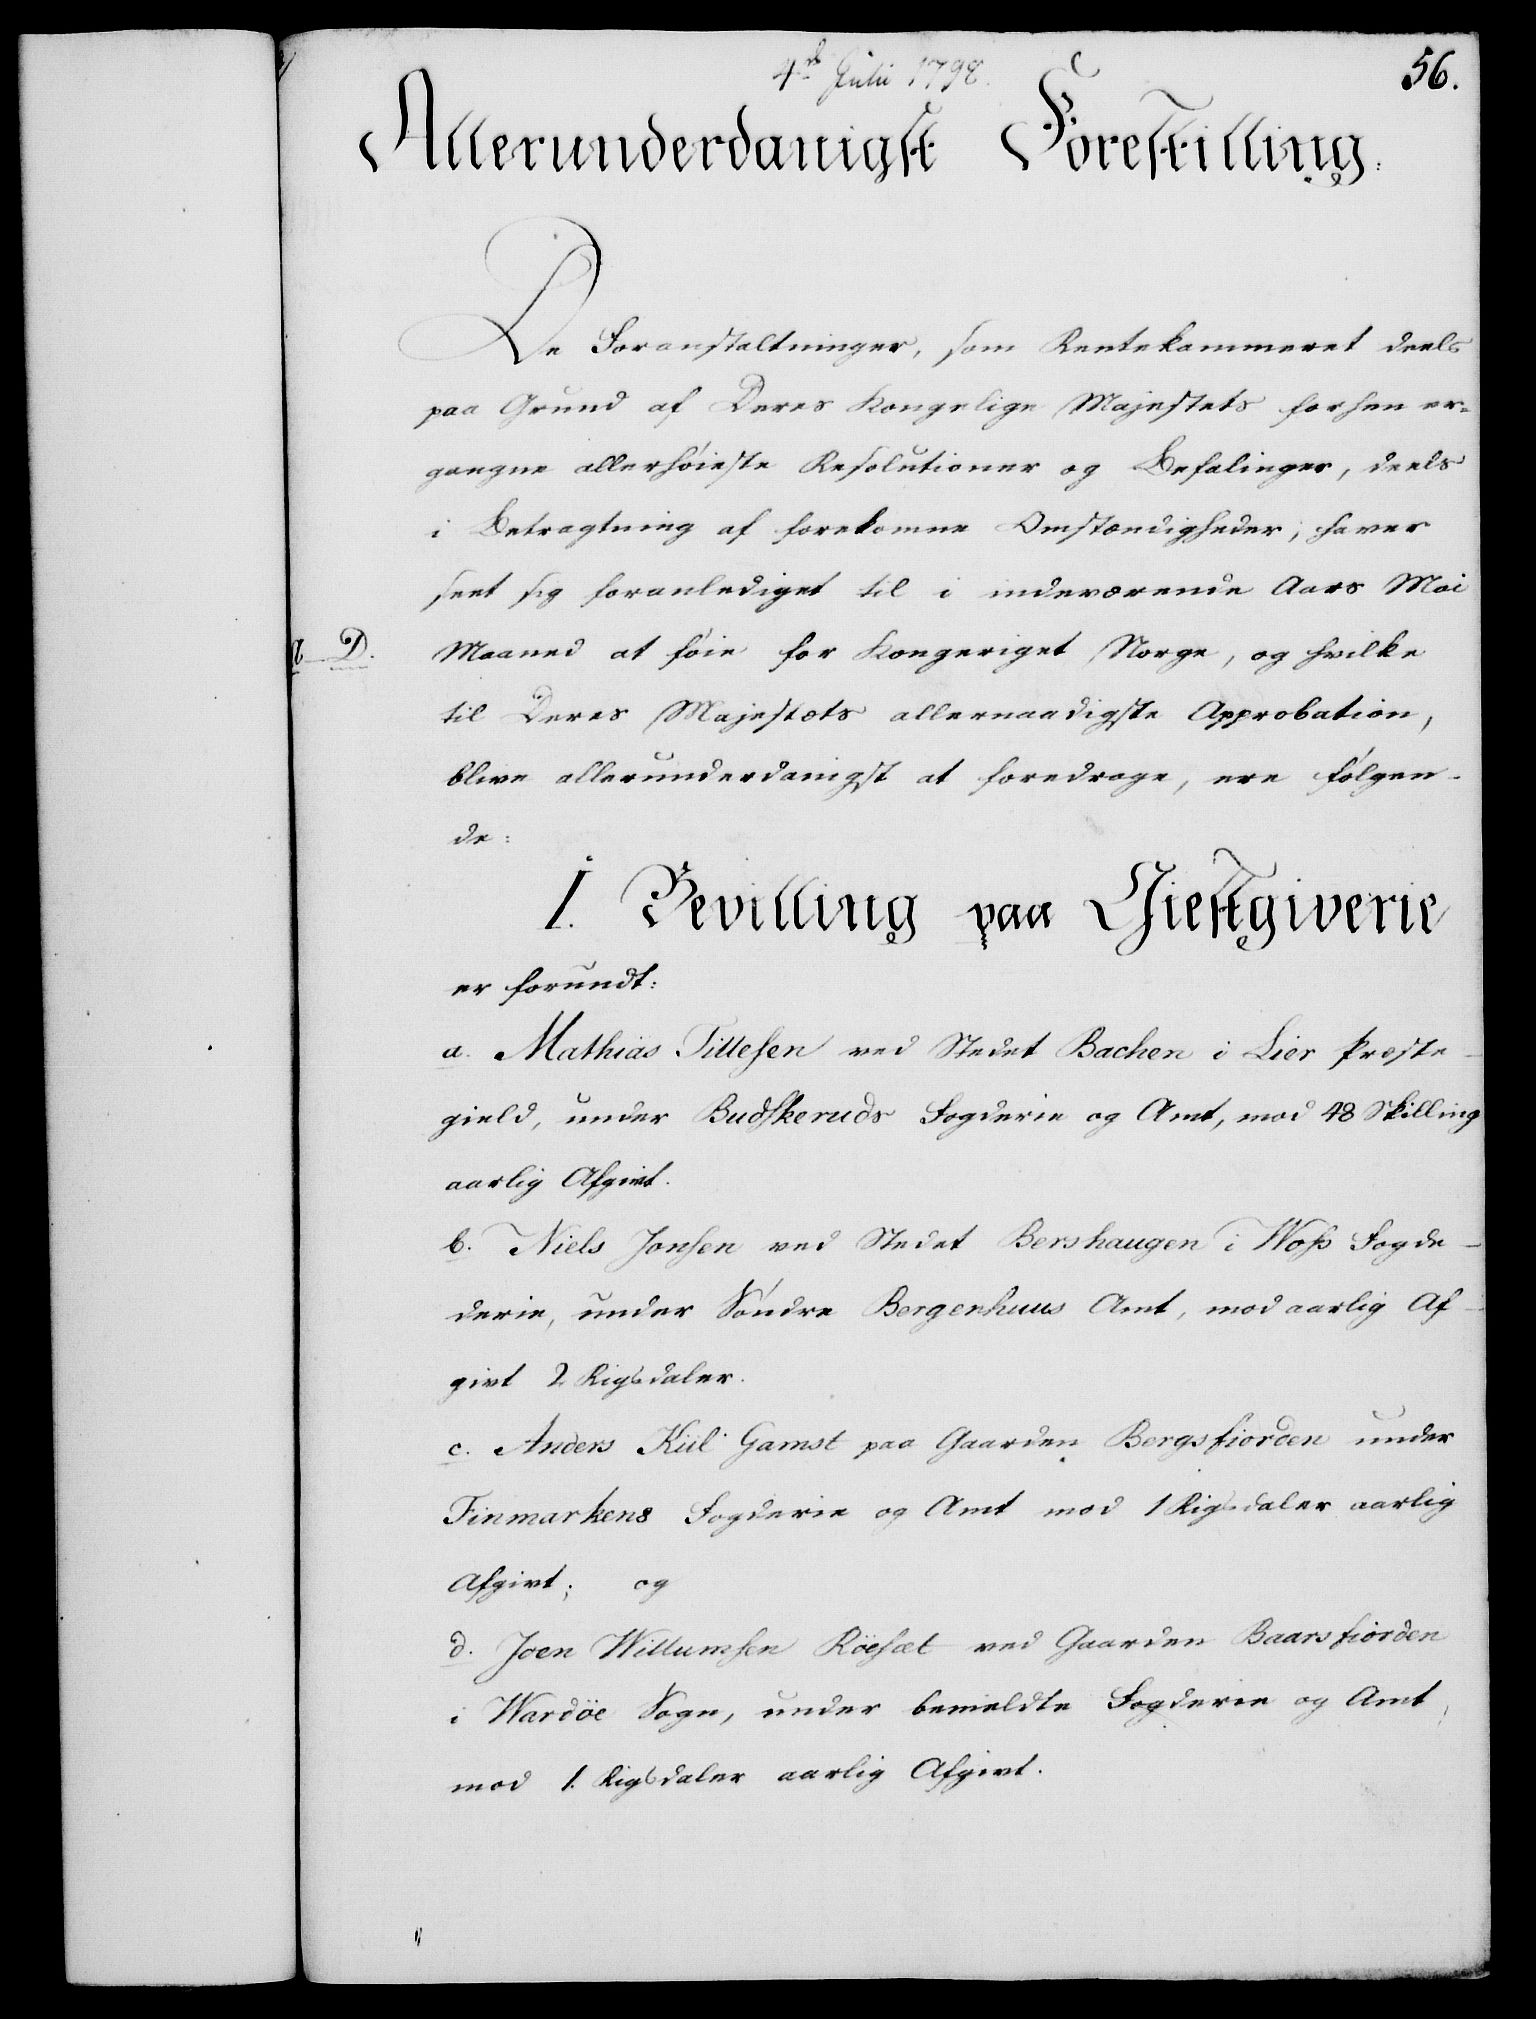 4de Julii 1798.
56.
Allerunderdanigst Forestilling:
De Foranstaltninger, som Rentekammeret deels
paa Grund af Deres Kongelige Majestets forhen er-
gangne allerhöieste Resolutioner og Befalinger, deels
i Betragtning af forekomne Omstændigheder, haver
seet sig foranlediget til i indeværende Aars Mai
D. Maaned at föie for Kongeriget Norge, og hvilke
til Deres Majestæts allernaadigste Approbation,
blive allerunderdanigst at foredrage, ere fölgen-
de:
I. Bevilling paa Giestgiverie
er forundt:
a. Mathias Tillesen ved Stedet Bachen i Lier Præste-
gield, under Budskeruds Fogderie og Amt, mod 48 Skilling
aarlig Afgivt.
b. Niels Jonsen ved Stedet Bershaugen i Woss Fogde-
derie, under Söndre Bergenhuus Amt, mod aarlig Af-
givt 2 Rigsdaler.
c. Anders Kiil Gamst paa Gaarden Bergsfiorden under
Finmarkens Fogderie og Amt mod 1 Rigsdaler aarlig
Afgivt; og
d. Joen Willumsen Röesæt ved Gaarden Baarsfiorden
i Wardöe Sogn, under bemeldte Fogderie og Amt,
mod 1. Rigsdaler aarlig Afgivt.